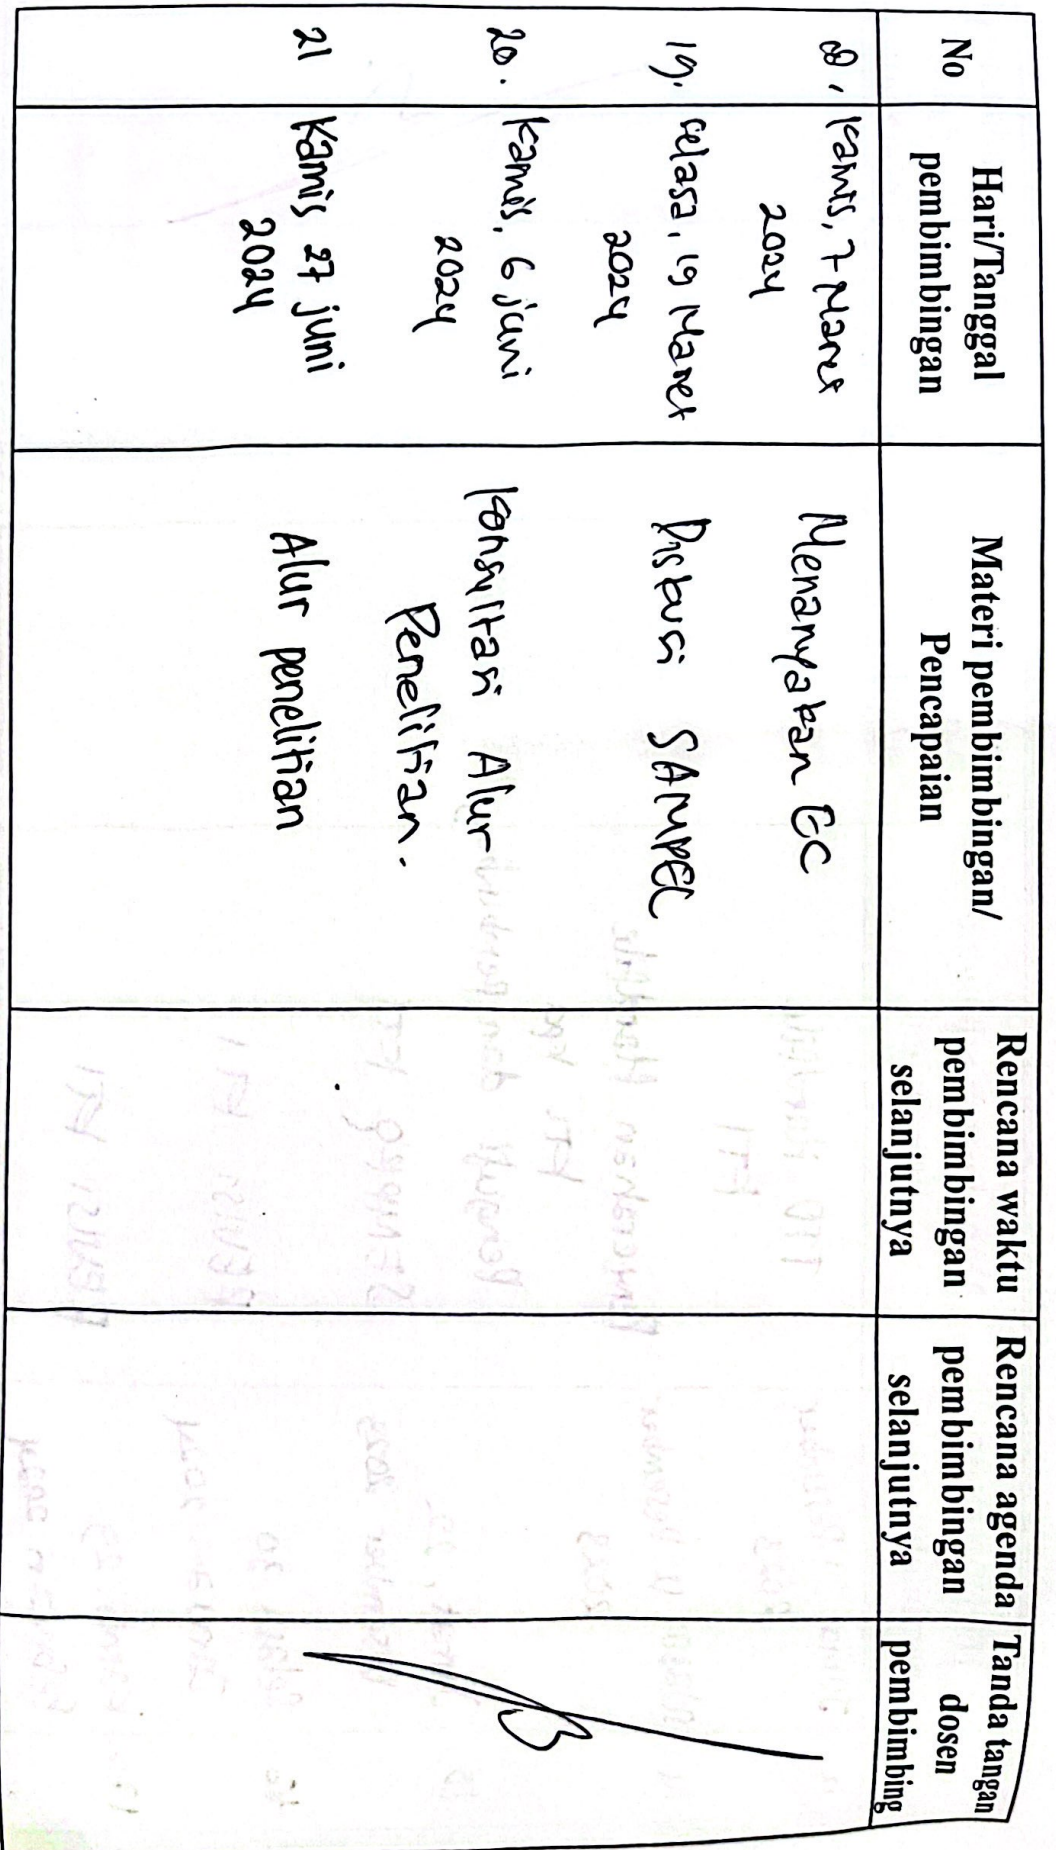 No
Hari/Tanggal
pembimbingan
Materi pembimbingan/
Pencapaian
Rencana waktu
pembimbingan
selanjutnya
Rencana agenda
pembimbingan
selanjutnya
Tanda tangan
dosen
pembimbing
Kamis, 7 Maret
2024
Menanyakan EC
19. Selasa, 19 Maret
2024
Diskusi SAMPEL
20. Kamis, 6 juni
2024
Konsultasi Alur
Penelitian.
21 Kamis 27 juni
2024
Alur penelitian